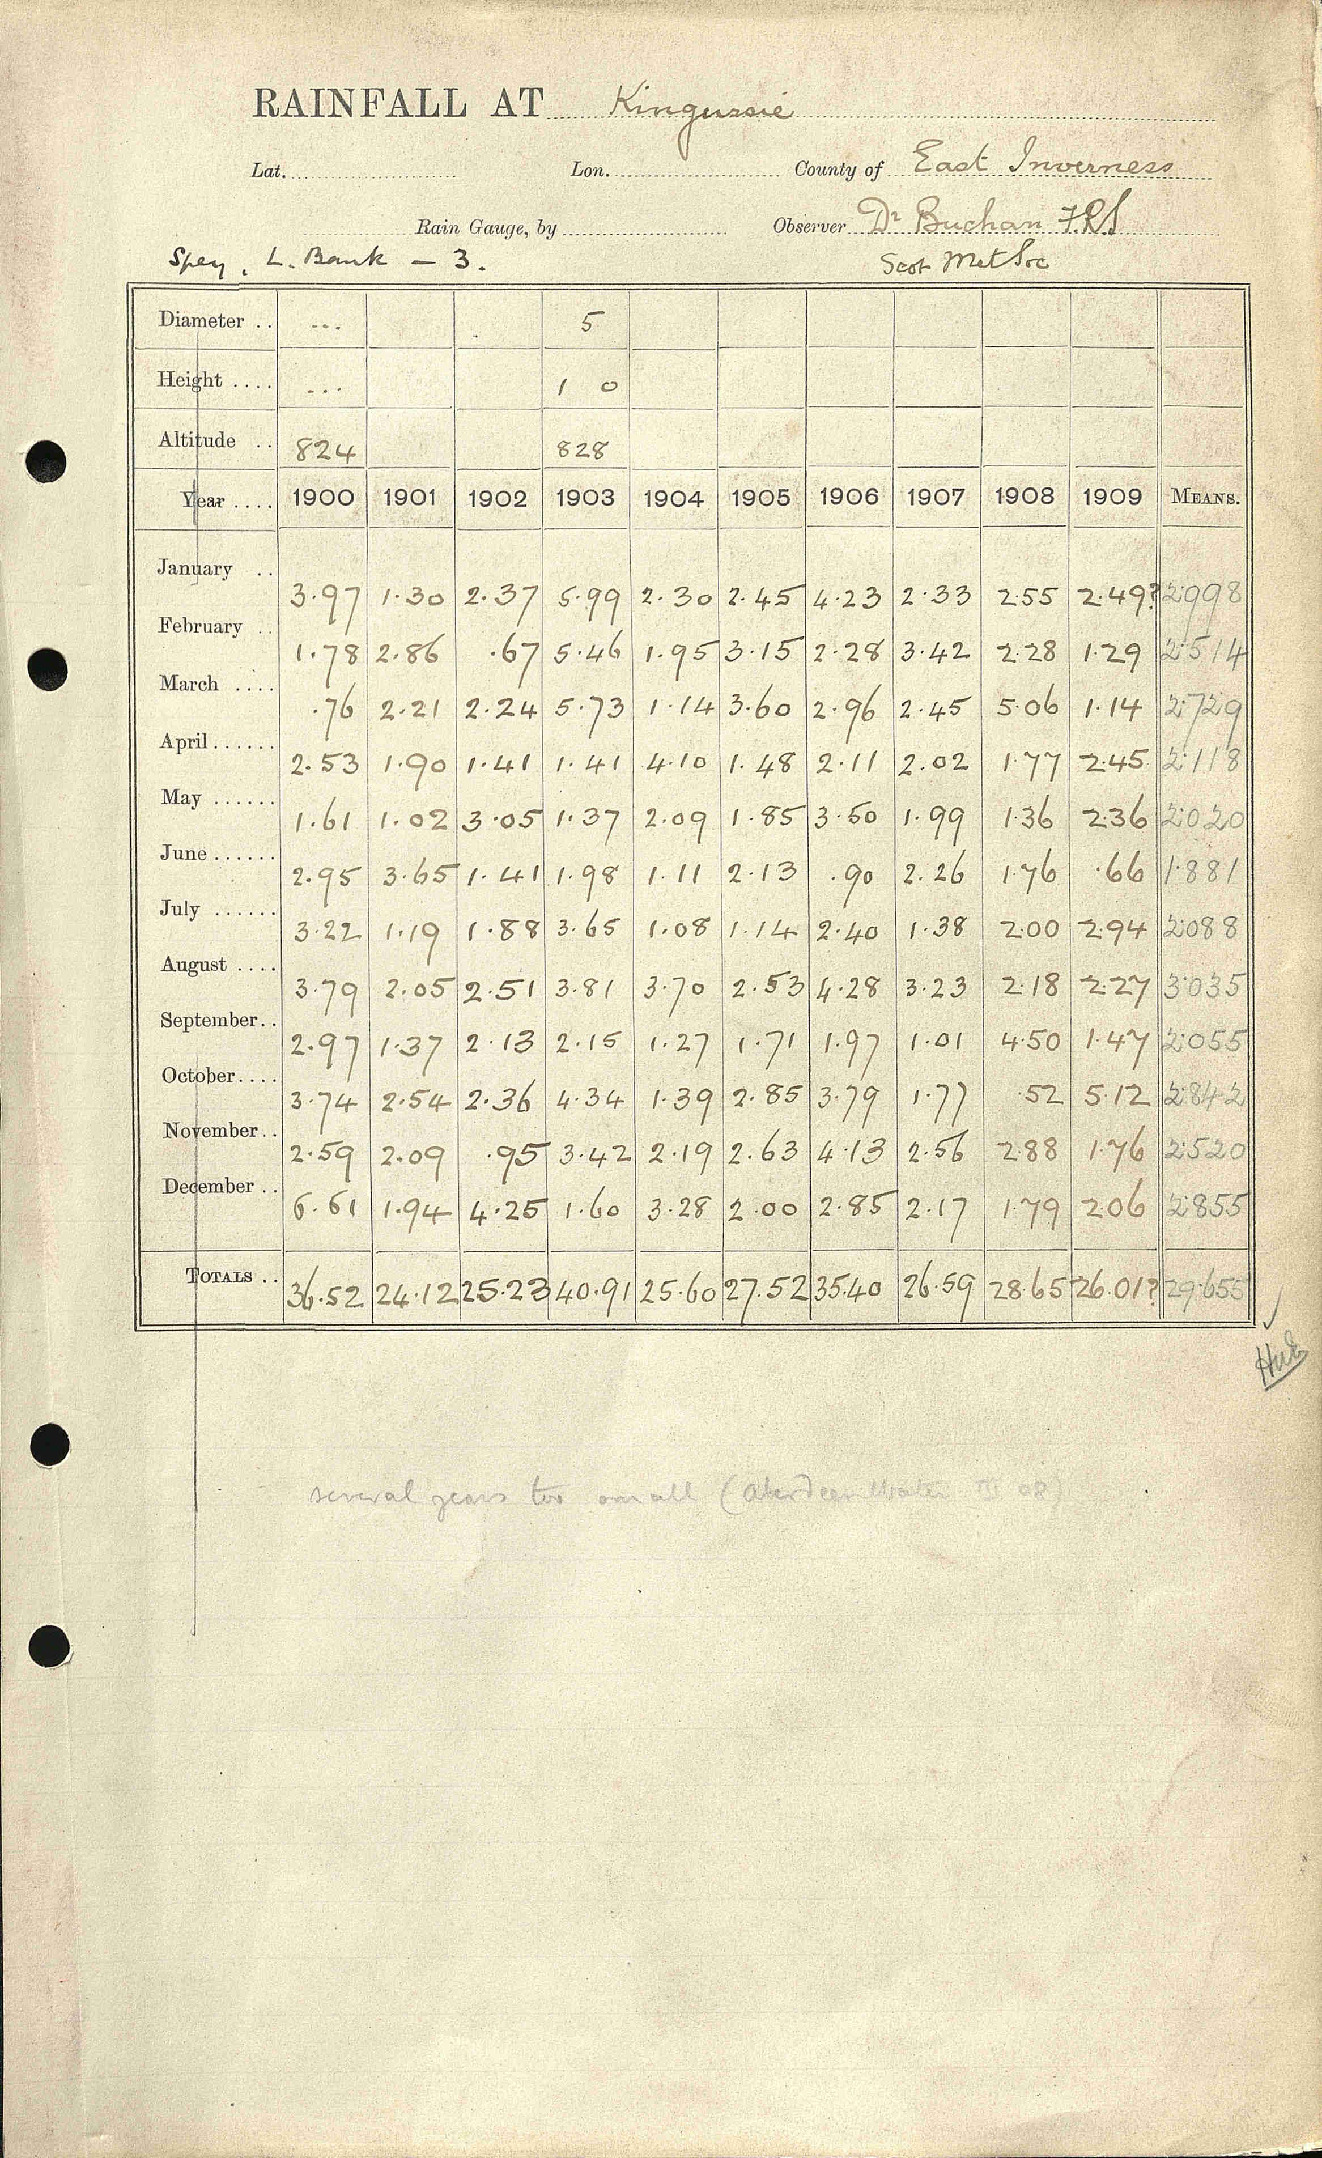 RAINFALL AT Kingussie
Lat. Lon. County of East Inverness
Rain Gauge, by Observer Dr Buchan F.R.S
Spey, L. Bank - 3. Scot Met Soc
Diameter .. --- 5
Height .... --- 1 0
Altitude .. 824 828
Year .... 1900 1901 1902 1903 1904 1905 1906 1907 1908 1909 MEANS.
January .. 3.97 1.30 2.37 5.99 2.30 2.45 4.23 2.33 2.55 2.49? 2.998
February .. 1.78 2.86 .67 5.46 1.95 3.15 2.28 3.42 2.28 1.29 2.514
March .... .76 2.21 2.24 5.73 1.14 3.60 2.96 2.45 5.06 1.14 2.729
April...... 2.53 1.90 1.41 1.41 4.10 1.48 2.11 2.02 1.77 2.45 2.118
May ...... 1.61 1.02 3.05 1.37 2.09 1.85 3.50 1.99 1.36 2.36 2.020
June...... 2.95 3.65 1.41 1.98 1.11 2.13 .90 2.26 1.76 .66 1.881
July ...... 3.22 1.19 1.88 3.65 1.08 1.14 2.40 1.38 2.00 2.94 2.088
August .... 3.79 2.05 2.51 3.81 3.70 2.53 4.28 3.23 2.18 2.27 3.035
September.. 2.97 1.37 2.13 2.15 1.27 1.71 1.97 1.01 4.50 1.47 2.055
October.... 3.74 2.54 2.36 4.34 1.39 2.85 3.79 1.77 .52 5.12 2.842
November.. 2.59 2.09 .95 3.42 2.19 2.63 4.13 2.56 2.88 1.76 2.520
December .. 6.61 1.94 4.25 1.60 3.28 2.00 2.85 2.17 1.79 2.06 2.855
TOTALS .. 36.52 24.12 25.23 40.91 25.60 27.52 35.40 26.59 28.65 26.01? 29.655
several years too small (Aberdeen Water III 08)